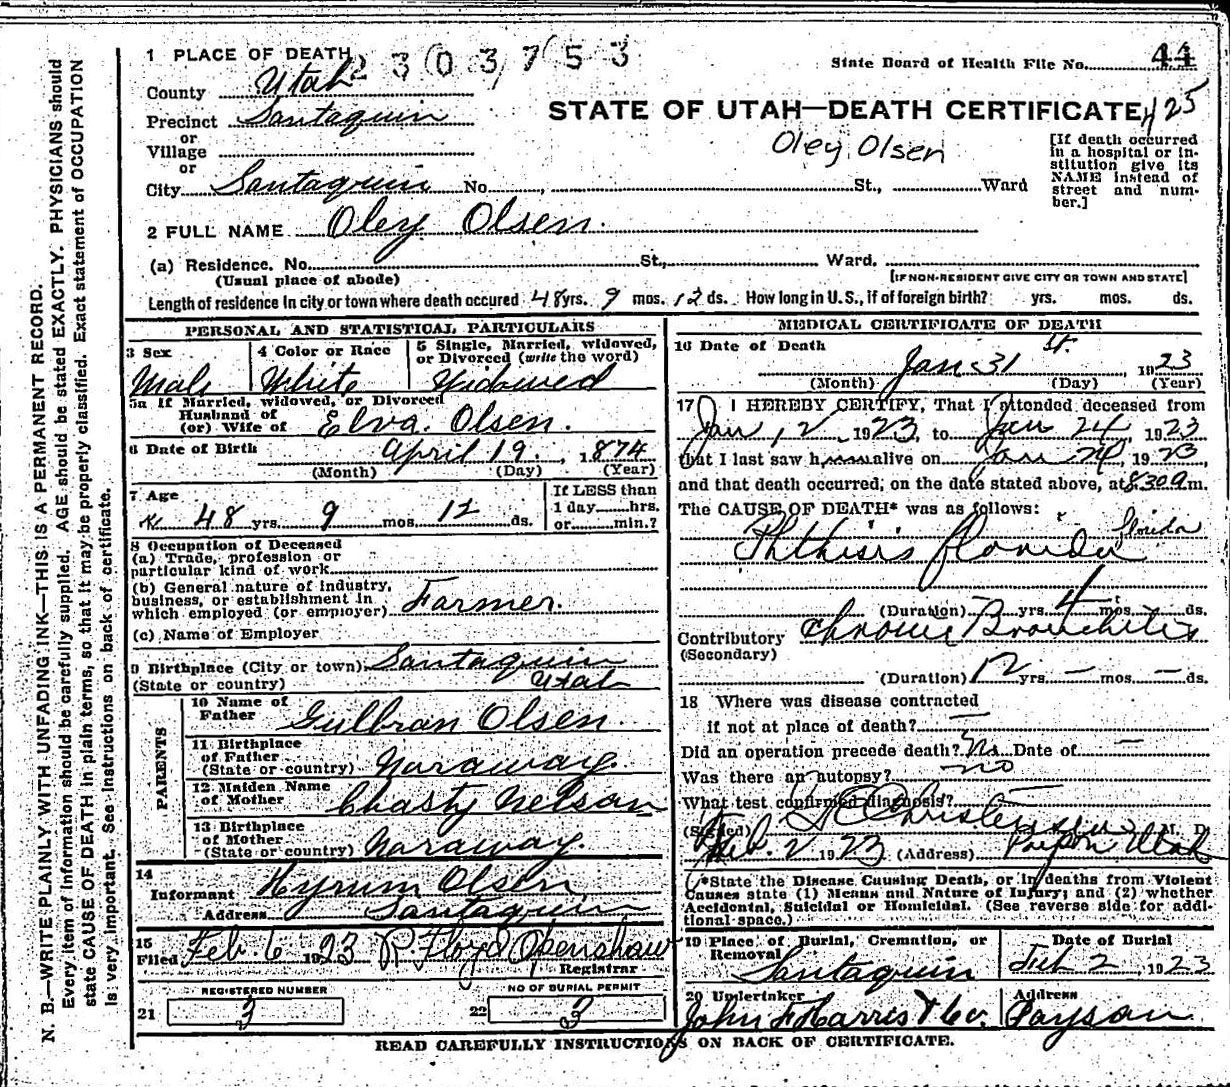 N. B.—WRITE PLAINLY WITH UNFADING INK—THIS IS A PERMANENT RECORD.
Every item of information should be carefully supplied. AGE should be stated EXACTLY. PHYSICIANS should
state CAUSE OF DEATH in plain terms, so that it may be properly classified. Exact statement of OCCUPATION
is very important. See instructions on back of certificate.
1 PLACE OF DEATH 2303753
State Board of Health File No. 44
County Utah
STATE OF UTAH—DEATH CERTIFICATE 425
Precinct Santaquin
or
Village
or
Oley Olsen
[If death occurred
in a hospital or in-
stitution give its
NAME instead of
street and num-
ber.]
City Santaquin No. , St., Ward
2 FULL NAME Oley Olsen.
(a) Residence. No. St., Ward.
(Usual place of abode) [IF NON-RESIDENT GIVE CITY OR TOWN AND STATE]
Length of residence in city or town where death occured 48 yrs. 9 mos. 12 ds. How long in U.S., if of foreign birth? yrs. mos. ds.
PERSONAL AND STATISTICAL PARTICULARS
3 Sex
Male
4 Color or Race
White
5 Single, Married, widowed,
or Divorced (write the word)
Widowed
5a If Married, widowed, or Divorced
Husband of
(or) Wife of Elva. Olsen.
6 Date of Birth April 19. , 1874
(Month) (Day) (Year)
7 Age
48 yrs. 9 mos. 12 ds.
If LESS than
1 day hrs.
or min.?
8 Occupation of Deceased
(a) Trade, profession or
particular kind of work
(b) General nature of industry,
business, or establishment in
which employed (or employer) Farmer.
(c) Name of Employer
9 Birthplace (City or town) Santaquin
(State or country) Utah
PARENTS
10 Name of
Father Gulbran Olsen.
11 Birthplace
of Father
(State or country) Noraway.
12 Maiden Name
of Mother Chasty Nelson
13 Birthplace
of Mother
(State or country) Noraway.
14
Informant Hyrum Olsen
Address Santaquin
15
Filed Feb. 6 1923 R. Floyd Openshaw
Registrar
REGISTERED NUMBER
21 3
NO OF BURIAL PERMIT
22 3
MEDICAL CERTIFICATE OF DEATH
16 Date of Death
Jan 31 st. 1923
(Month) (Day) (Year)
17 I HEREBY CERTIFY, That I attended deceased from
Jan 12, 1923, to Jan 24, 1923
that I last saw him alive on Jan 24, 1923,
and that death occurred, on the date stated above, at 8 30 a m.
The CAUSE OF DEATH* was as follows:
Florida
Phthisis florida
(Duration) yrs. 4 mos. ds.
Contributory Chronic Bronchitis
(Secondary)
(Duration) 12 yrs. — mos. — ds.
18 Where was disease contracted
if not at place of death? —
Did an operation precede death? No Date of —
Was there an autopsy? no
What test confirmed diagnosis? —
(Signed) Christensen M. D.
Feb. 2 1923 (Address) Payson Utah
*State the Disease Causing Death, or in deaths from Violent
Causes state (1) Means and Nature of Injury; and (2) whether
Accidental, Suicidal or Homicidal. (See reverse side for addi-
tional space.)
19 Place of Burial, Cremation, or
Removal
Santaquin
Date of Burial
Feb 2, 1923
20 Undertaker
John F Harris & Co.
Address
Payson
READ CAREFULLY INSTRUCTIONS ON BACK OF CERTIFICATE.